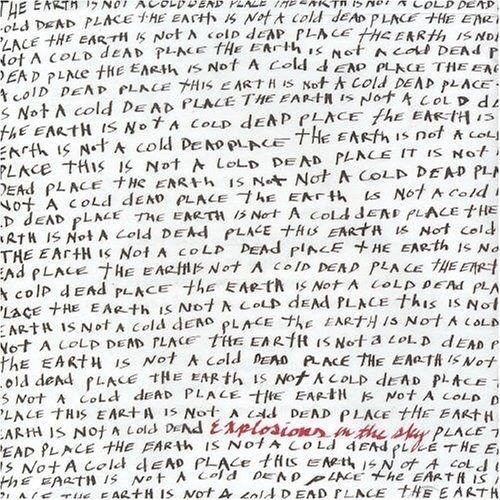 THE EARTH IS NOT A COLD DEAD PLACE THE EARTH IS NOT A COLD DEAD
OLD DEAD PLACE THE EARTH IS NOT A COLD DEAD PLACE THE EAR
LACE THE EARTH IS NOT A COLD DEAD PLACE THE EARTH IS NO
NOT A COLD DEAD PLACE THE EARTH IS NOT A COLD DEAD P
DEAD PLACE THE EARTH IS NOT A COLD dEAD PLACE THE EA
A COLD DEAD PLACE THIS EARTH IS NOT A COLD DEAD PLACE
S NOT A COLD DEAD PLACE THE EARTH IS NOT A COLD D
THE EARTH IS NOT A COLD DEAD PLACE THE EARTH IS
EARTH IS NOT A COLD DEAD PLACE THE EARTH IS NOT A COL
PLACE THIS IS NOT A COLD DEAD PLACE IT IS NOT
DEAD PLACE THE EARTH IS NOT NOT A COLD DEAD PL
NOT A COLD DEAD PLACE THE EARTH IS NOT A COLD
D DEAD PLACE THE EARTH IS NOT A COLD DEAD PLACE THE
RTH IS NOT A COLD DEAD PLACE THIS EARTH IS NOT COLD
THE EARTH IS NOT A COLD DEAD PLACE THE EARTH IS NO
EAD PLACE THE EARTH IS NOT A COLD DEAD PLACE THE EART
A COLD dEAD PLACE THE EARTH IS NOT A COLD DEAD PLA
LACE THE EARTH IS NOT A COLD DEAD PLACE THIS IS NOT
EARTH IS NOT A COLD DEAD PLACE THE EARTH IS NOT A COL
NOT A COLD DEAD PLACE THE EARTH IS NOT A COLD DEAD P
THE EARTH IS NOT A COLD DEAD PLACE THE EARTH IS NOT
OLD DEAD PLACE THE EARTH IS NOT A COLD DEAD PLACE
S NOT A COLD DEAD PLACE THE EARTH IS NOT A COLD
PLACE THIS EARTH IS NOT A COLD DEAD PLACE THE EARTH
EARTH IS NOT A COLD DEAD Explosions in the sky PLACE T
DEAD PLACE THE EARTH IS NOT A COLD DEAD PLACE THE E
IS NOT A COLD DEAD PLACE THIS EARTH IS NOT A COLD
THE EARTH IS NOT A COLD DEAD PLACE THE EARTH IS
PLACE THE EARTH IS NOT A COLD DEAD PLACE THE EARTH